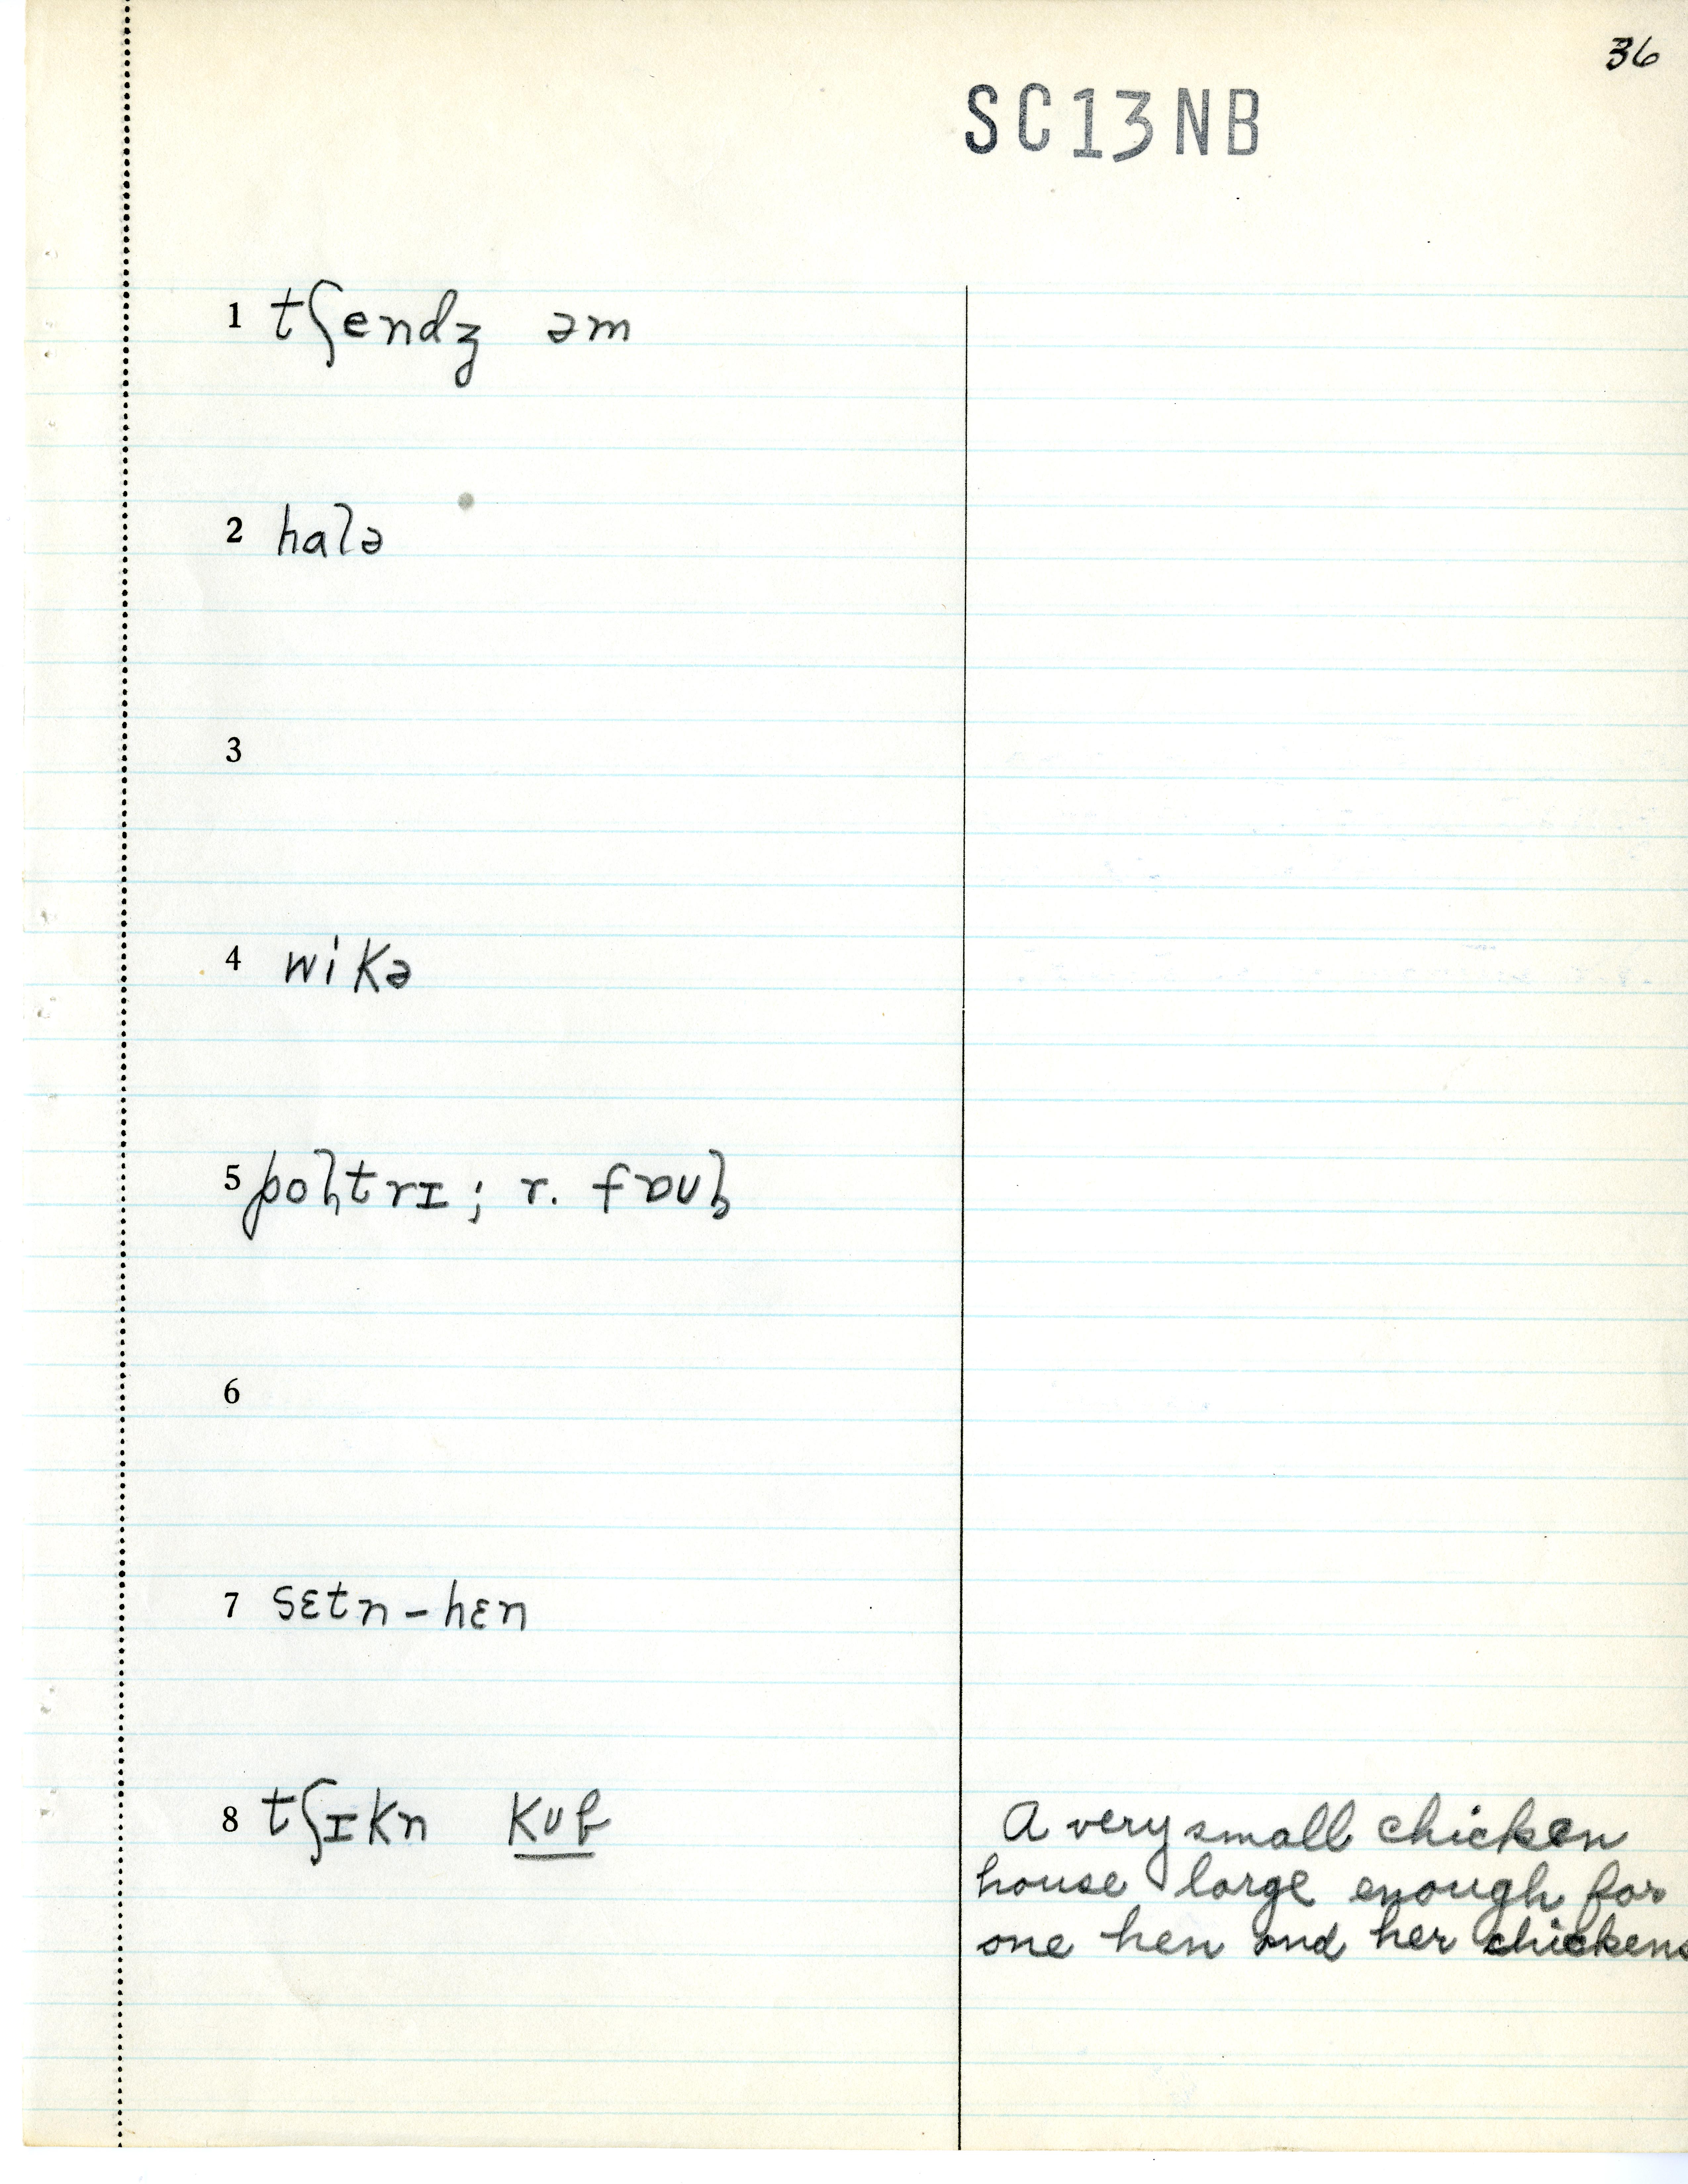 36
SC13NB
1 tʃendʒ əm
2 halə
3
4 wikə
5 poltrɪ; r. fɒul
6
7 sɛtn-hɛn
8 tʃɪkn kub
A very small chicken
house large enough for
one hen and her chickens